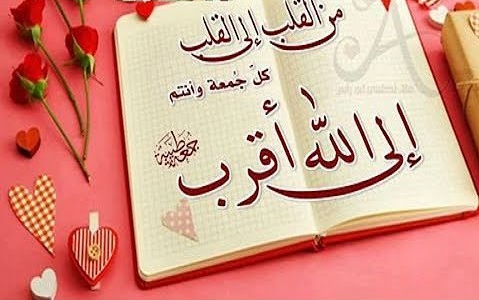 من القلب إلى القلب
كلّ جُمعة وأنتم
إلى الله أقرب
جمعة طيبة